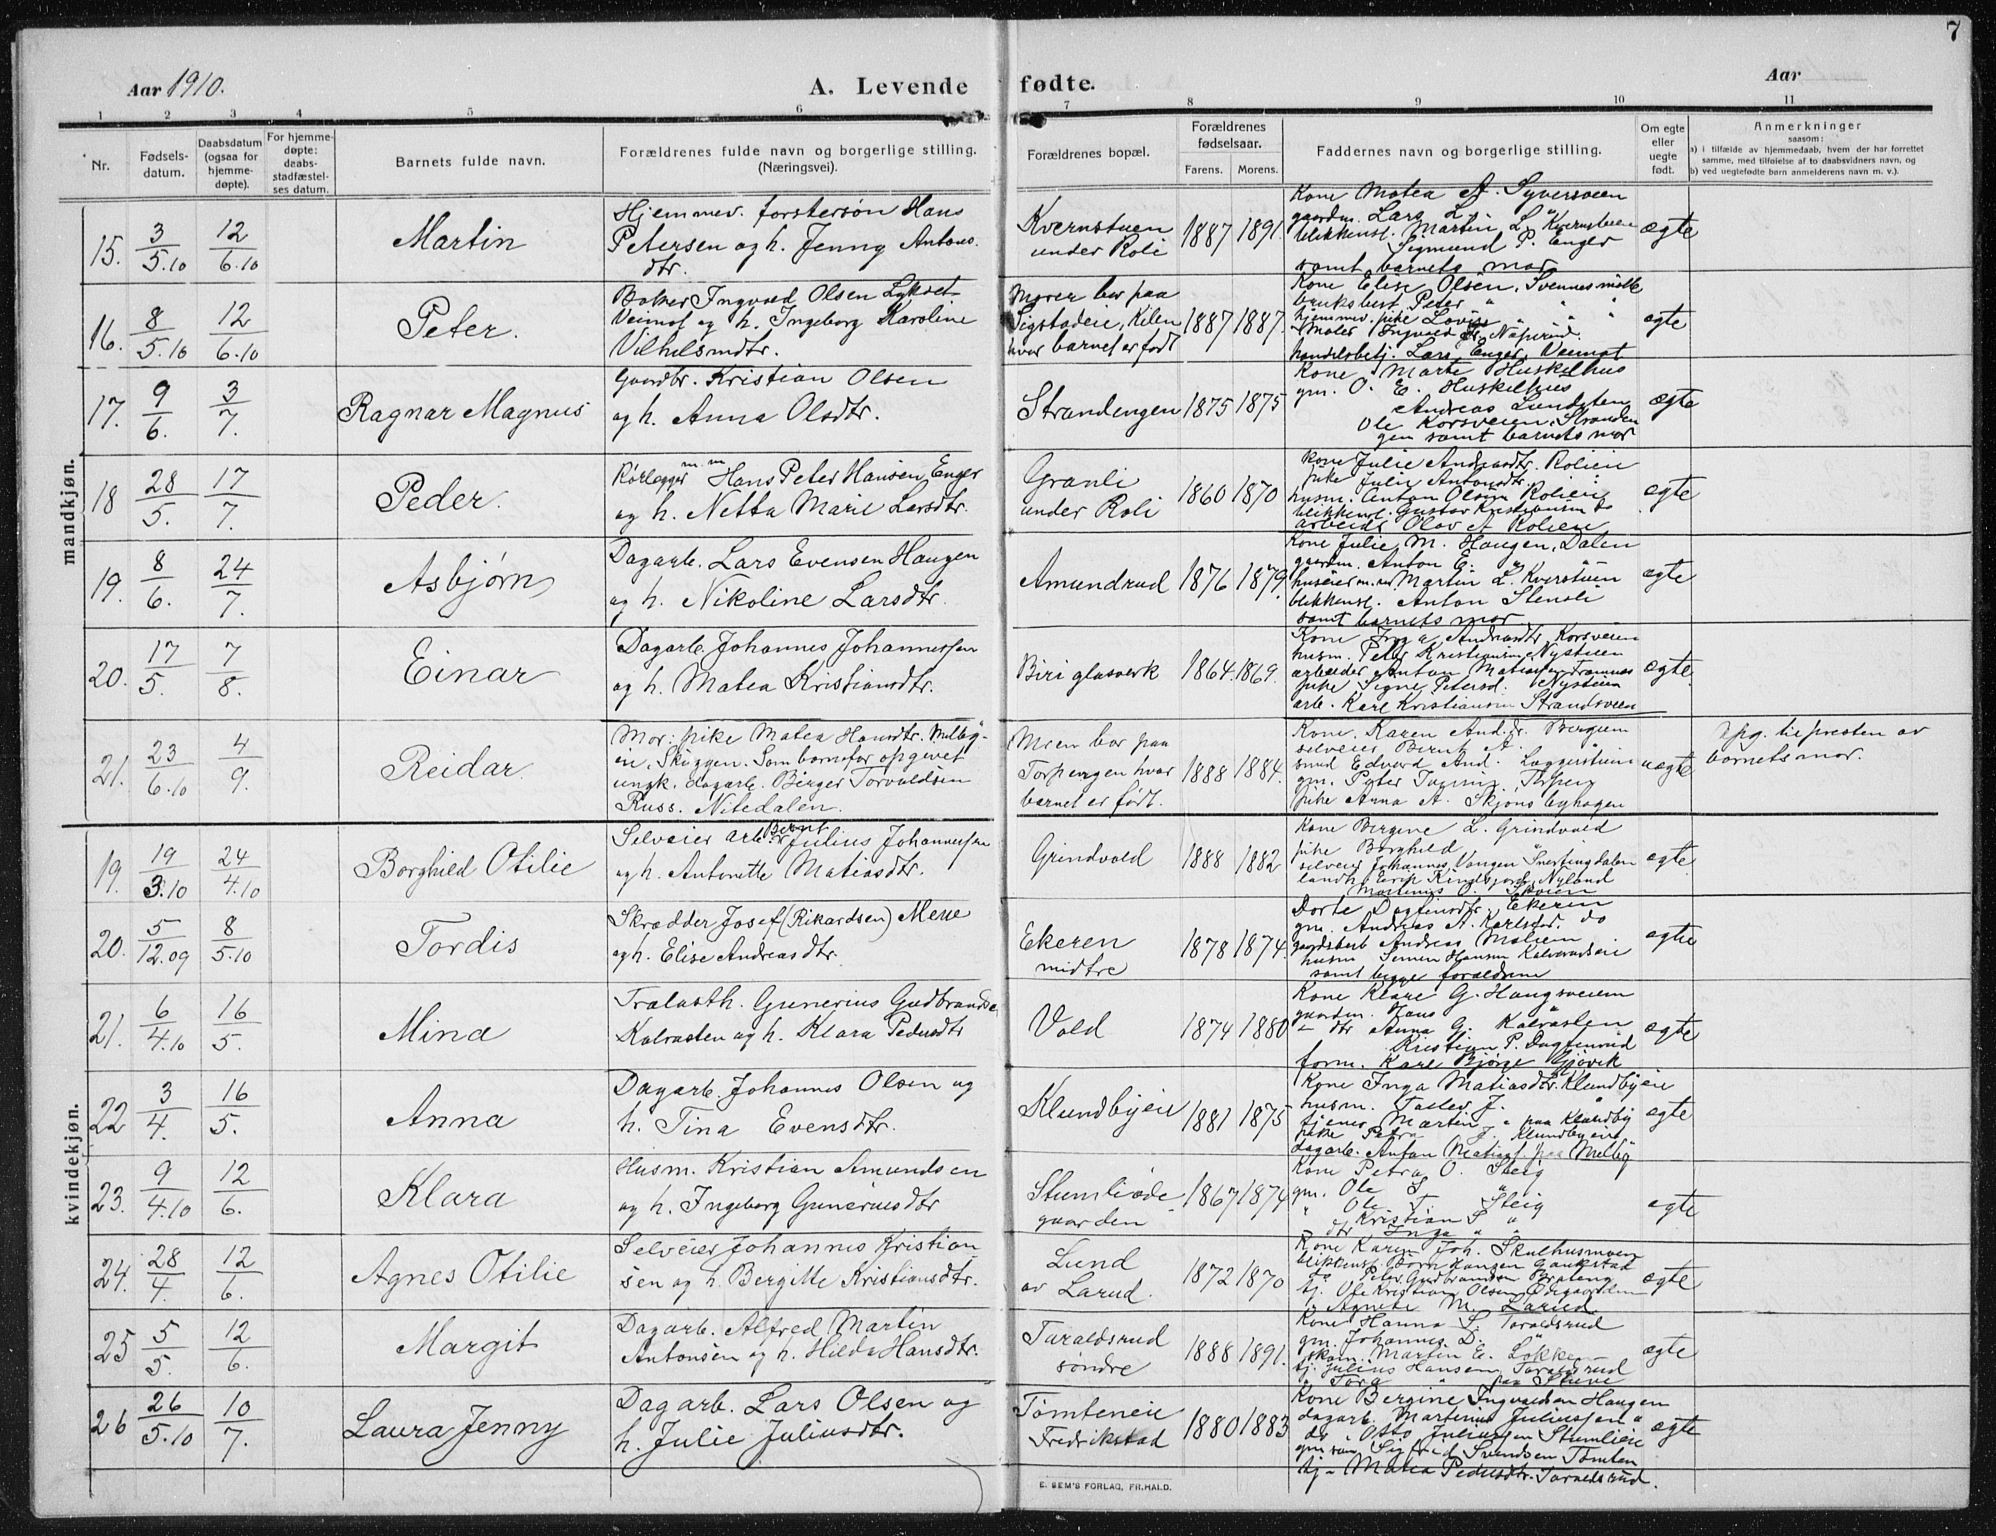 7
Aar 1910.
A. Levende fødte.
Aar
1 2 3 4 5 6 7 8 9 10 11
Nr.
Fødsels-
datum.
Daabsdatum
(ogsaa for
hjemme-
døpte).
For hjemme-
døpte:
daabs-
stadfæstel-
ses datum.
Barnets fulde navn.
Forældrenes fulde navn og borgerlige stilling.
(Næringsvei).
Forældrenes bopæl.
Forældrenes
fødselsaar.
Farens. Morens.
Faddernes navn og borgerlige stilling.
Om egte
eller
uegte
født.
Anmerkninger
saasom:
a) i tilfælde av hjemmedaab, hvem der har forrettet
samme, med tilføielse af to daabsvidners navn, og
b) ved uegtefødte børn anmelderens navn m. v.).
mandkjøn.
15. 3/5.10 12/6.10 Martin
Hjemmev. forstersøn Hans
Petersen og h. Jenny Antons.
dtr.
Kvernstuen
under Roli
1887 1891.
Kone Matea A. Syversveen
gaardm. Lars L. "
blikkensl. Martin L. Kvernstuen
Sigmund P. Enger
samt barnets mor
ægte
16. 8/5.10 12/6.10 Peter.
Baker Ingvald Olsen
Veimot og h. Ingeborg Karoline
Vilhelsmdtr.
Moren bor paa
Sigstadeie, Kilen
hvor barnet er født
1887 1887.
Kone Elise Olsen, Svennesmølle
bruksbest. Peter " "
hjemmev. pike Lovise " "
Maler Ingvald
handelsbetj. Lars Enger, Veimot
egte
17. 9/6. 3/7. Ragnar Magnus
Gaardbr. Kristian Olsen
og h. Anna Olsdtr.
Strandengen
1875 1875
Kone Marte Huskelhus
gm. O. E. Huskelhus
Andreas Lundsten
Ole Korsveien, Stranden
gen samt barnets mor
ægte
18 28/5. 17/7. Peder.
Rørlegger m.m Hans Peter Hansen Enger
og h. Netta Marie Larsdtr.
Granli
under Roli
1860 1870
Kone Julie Andreasdtr. Rolien
pike Julie Antonsdtr. "
husm. Anton Olsen Rolien
blikkensl. Gustav Kristiansen do
arbeider Olav A Rolien
egte
19. 8/6. 24/7. Asbjørn
Dagarb. Lars Evensen Haugen
og h. Nikoline Larsdtr.
Amundrud
1876 1879.
Kone Julie M. Haugen, Dalen
gaardm. Anton E. " "
huseier m.m Martin L. Kverstuen
blikkensl. Anton Stensli
samt barnets mor
egte
20. 17/5. 7/8. Einar
Dagarb. Johannes Johannessen
og h. Matea Kristiansdtr.
Biri glasverk
1864. 1869.
Kone Inga Andreasdtr. Korsveien
husm. Peter Kristiansen Nystuen
arbeider Anton Matiassen Framnes
pike Signe Petersd. Nystuen
arb. Karl Kristiansen Strandsveen
ægte.
21. 23/6.10 4/9. Reidar.
Mor: pike Matea Hansdtr. Milby-
ei, Skuggen. Som barnefar opgivet
ungk. dagarb. Birger Torvaldsen
Russ. Nitedalen.
Moen bor paa
Torpevgen hvor
barnet er født.
1888 1884.
Kone Karen And.dr Bergum
selveier Bernt A. "
smed Edvard And. Laggerstuen
gm. Peter Torpen
pike Anna A. Skjønsbyhagen
uegte
Opg. til presten av
barnets mor.
kvindekjøn.
19. 19/3.10 24/4.10 Borghild Otilie
Selveier arb. Bernt Julius Johannessen
og h. Antonette Matiasdtr.
Grindvold
1888 1882
Kone Bergine L. Grindvold
pike Borghild "
selveier Johannes Vangen Snertingdalen
Nyland
Martinus O.
egte
20. 5/12.09 8/5.10 Tordis
Skrædder Josef (Rikardsen) Mene
og h. Elise Andreasdtr.
Ekeren
midtre
1878 1874.
Dorte Dagfinsdtr. Ekeren
gm. Andreas A. Karlsdtr. do
gaardsbest. Andreas Molien
husm Simen Hansen Kalverudseie
samt begge forældrene
egte
21. 6/4.10 16/5. Mina
Trælasth. Gunerius Gudbrandse
Kalrasten og h. Klara Pedersdtr
Vold
1874 1880
Kone Klare G. Haugsveien
gaardm. Hans "
- dtr Anna Gj. Kalrasten
Kristian P. Dagfinrud
form. Karl Bjørge Gjøvik
egte
22 3/4. 16/5. Anna
Dagarb. Johannes Olsen og
h. Tina Evensdtr.
Klundbyeie
1881 1875
Kone Inga Matiasdtr. Klundbyeie
husm. Tosten J. "
tjener Martin " paa Klundby
pike Petra J. Klundbyeie
dagarb. Anton Matias. paa Milby
egte
23. 9/4.10 12/6. Klara
Husm. Kristian Amundsen
og h. Ingeborg Guneriusdtr
Stumliøde-
gaarden
1867 1874
Kone Petra O. Steig
gm. Ole S "
" Ole T. Steig
Kristian S "
dtr Inga "
egte
24. 28/4. 12/6. Agnes Otilie
Selveier Johannes Kristian
sen og h. Bergitte Kristiansdtr.
Lund
av Larud.
1872 1870
Kone Karen Joh. Skulhusmoen
blikkensl. Bjørn Haugen Gaukstad
do Peter Gudbrandsen Brateng
tj. Ole Kristian Olsen Ødegaarden
" Agnete M. Larud
egte
25 5/5. 12/6. Margit
Dagarb. Alfred Martin
Antonsen og h. Hilda Hansdtr.
Taraldsrud
søndre
1888 1891.
Kone Hanna S. Taraldsrud
gm. Johannes D. "
skom. Martin E. Løkken
tj. Julius Hansen Taraldsrud
" Tora " paa Stuve
ægte
26 26/5.10 10/7. Laura Jenny
Dagarb. Lars Olsen og
h. Julie Juliusdtr.
Tømteneie
Fredrikstad
1880 1883
Kone Bergine Ingvaldsen Haugen
dagarb. Martinius Juliussen "
do Otto Juliussen Stumlieie
gm søn Sigfred Svendsen Tømten
tj - Matea Pedersdtr. Taraldsrud.
egte
E. SEM'S FORLAG, FR.HALD.